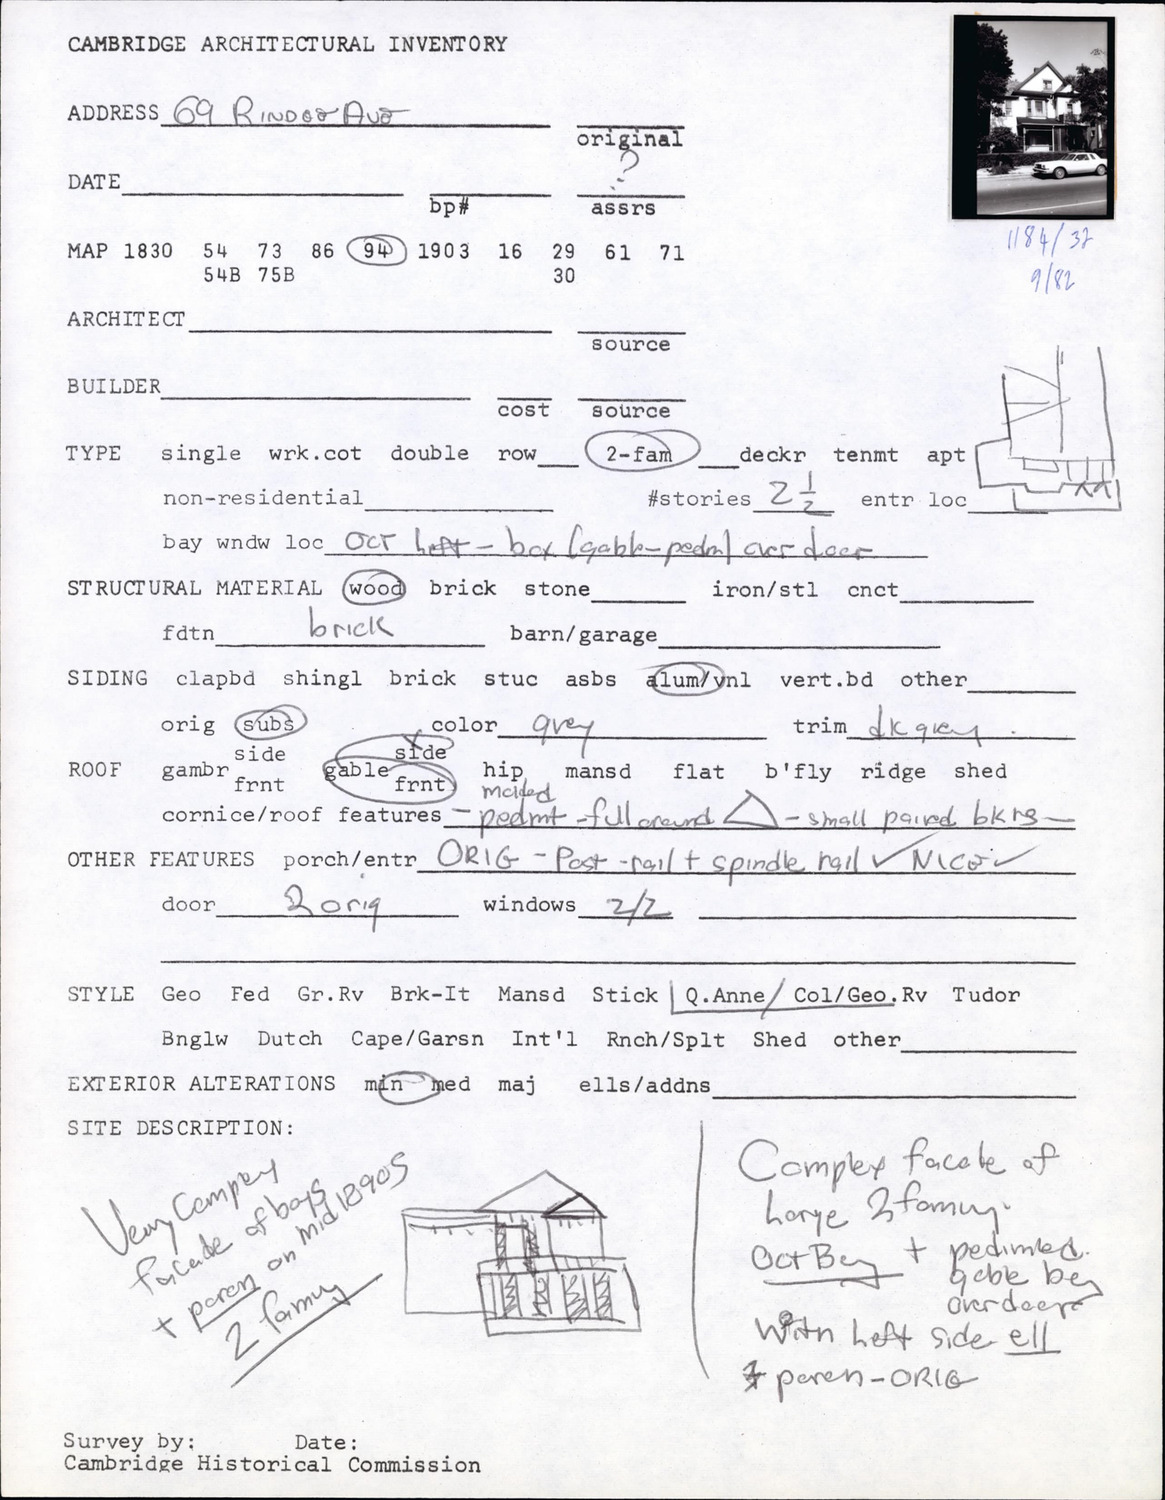 CAMBRIDGE ARCHITECTURAL INVENTORY
ADDRESS 69 RINDGE AVE
original
?
DATE
bp# assrs
MAP 1830 54 73 86 94 1903 16 29 61 71
54B 75B 30
1184/32
9/82
ARCHITECT
source
BUILDER
cost source
TYPE single wrk.cot double row 2-fam deckr tenmt apt
non-residential #stories 2 1/2 entr loc
bay wndw loc OCT left - box (gable-pedm) over door
STRUCTURAL MATERIAL wood brick stone iron/stl cnct
fdtn brick barn/garage
SIDING clapbd shingl brick stuc asbs alum/vnl vert.bd other
orig subs color grey trim dk grey
side side
ROOF gambr gable hip mansd flat b'fly ridge shed
frnt frnt
molded
cornice/roof features - pedmt - full around - small paired bkts
OTHER FEATURES porch/entr ORIG - Post - rail + spindle rail ✓ NICE ✓
door 2 orig windows 2/2
STYLE Geo Fed Gr.Rv Brk-It Mansd Stick Q.Anne/ Col/Geo.Rv Tudor
Bnglw Dutch Cape/Garsn Int'l Rnch/Splt Shed other
EXTERIOR ALTERATIONS min med maj ells/addns
SITE DESCRIPTION:
Very
facade of bays
+ porch on mid 1890s
2 family
Complex facade of
large 2 family.
Oct Bay + pedimted
gable bay
over door
With left side ell
+ porch - ORIG
Survey by: Date:
Cambridge Historical Commission